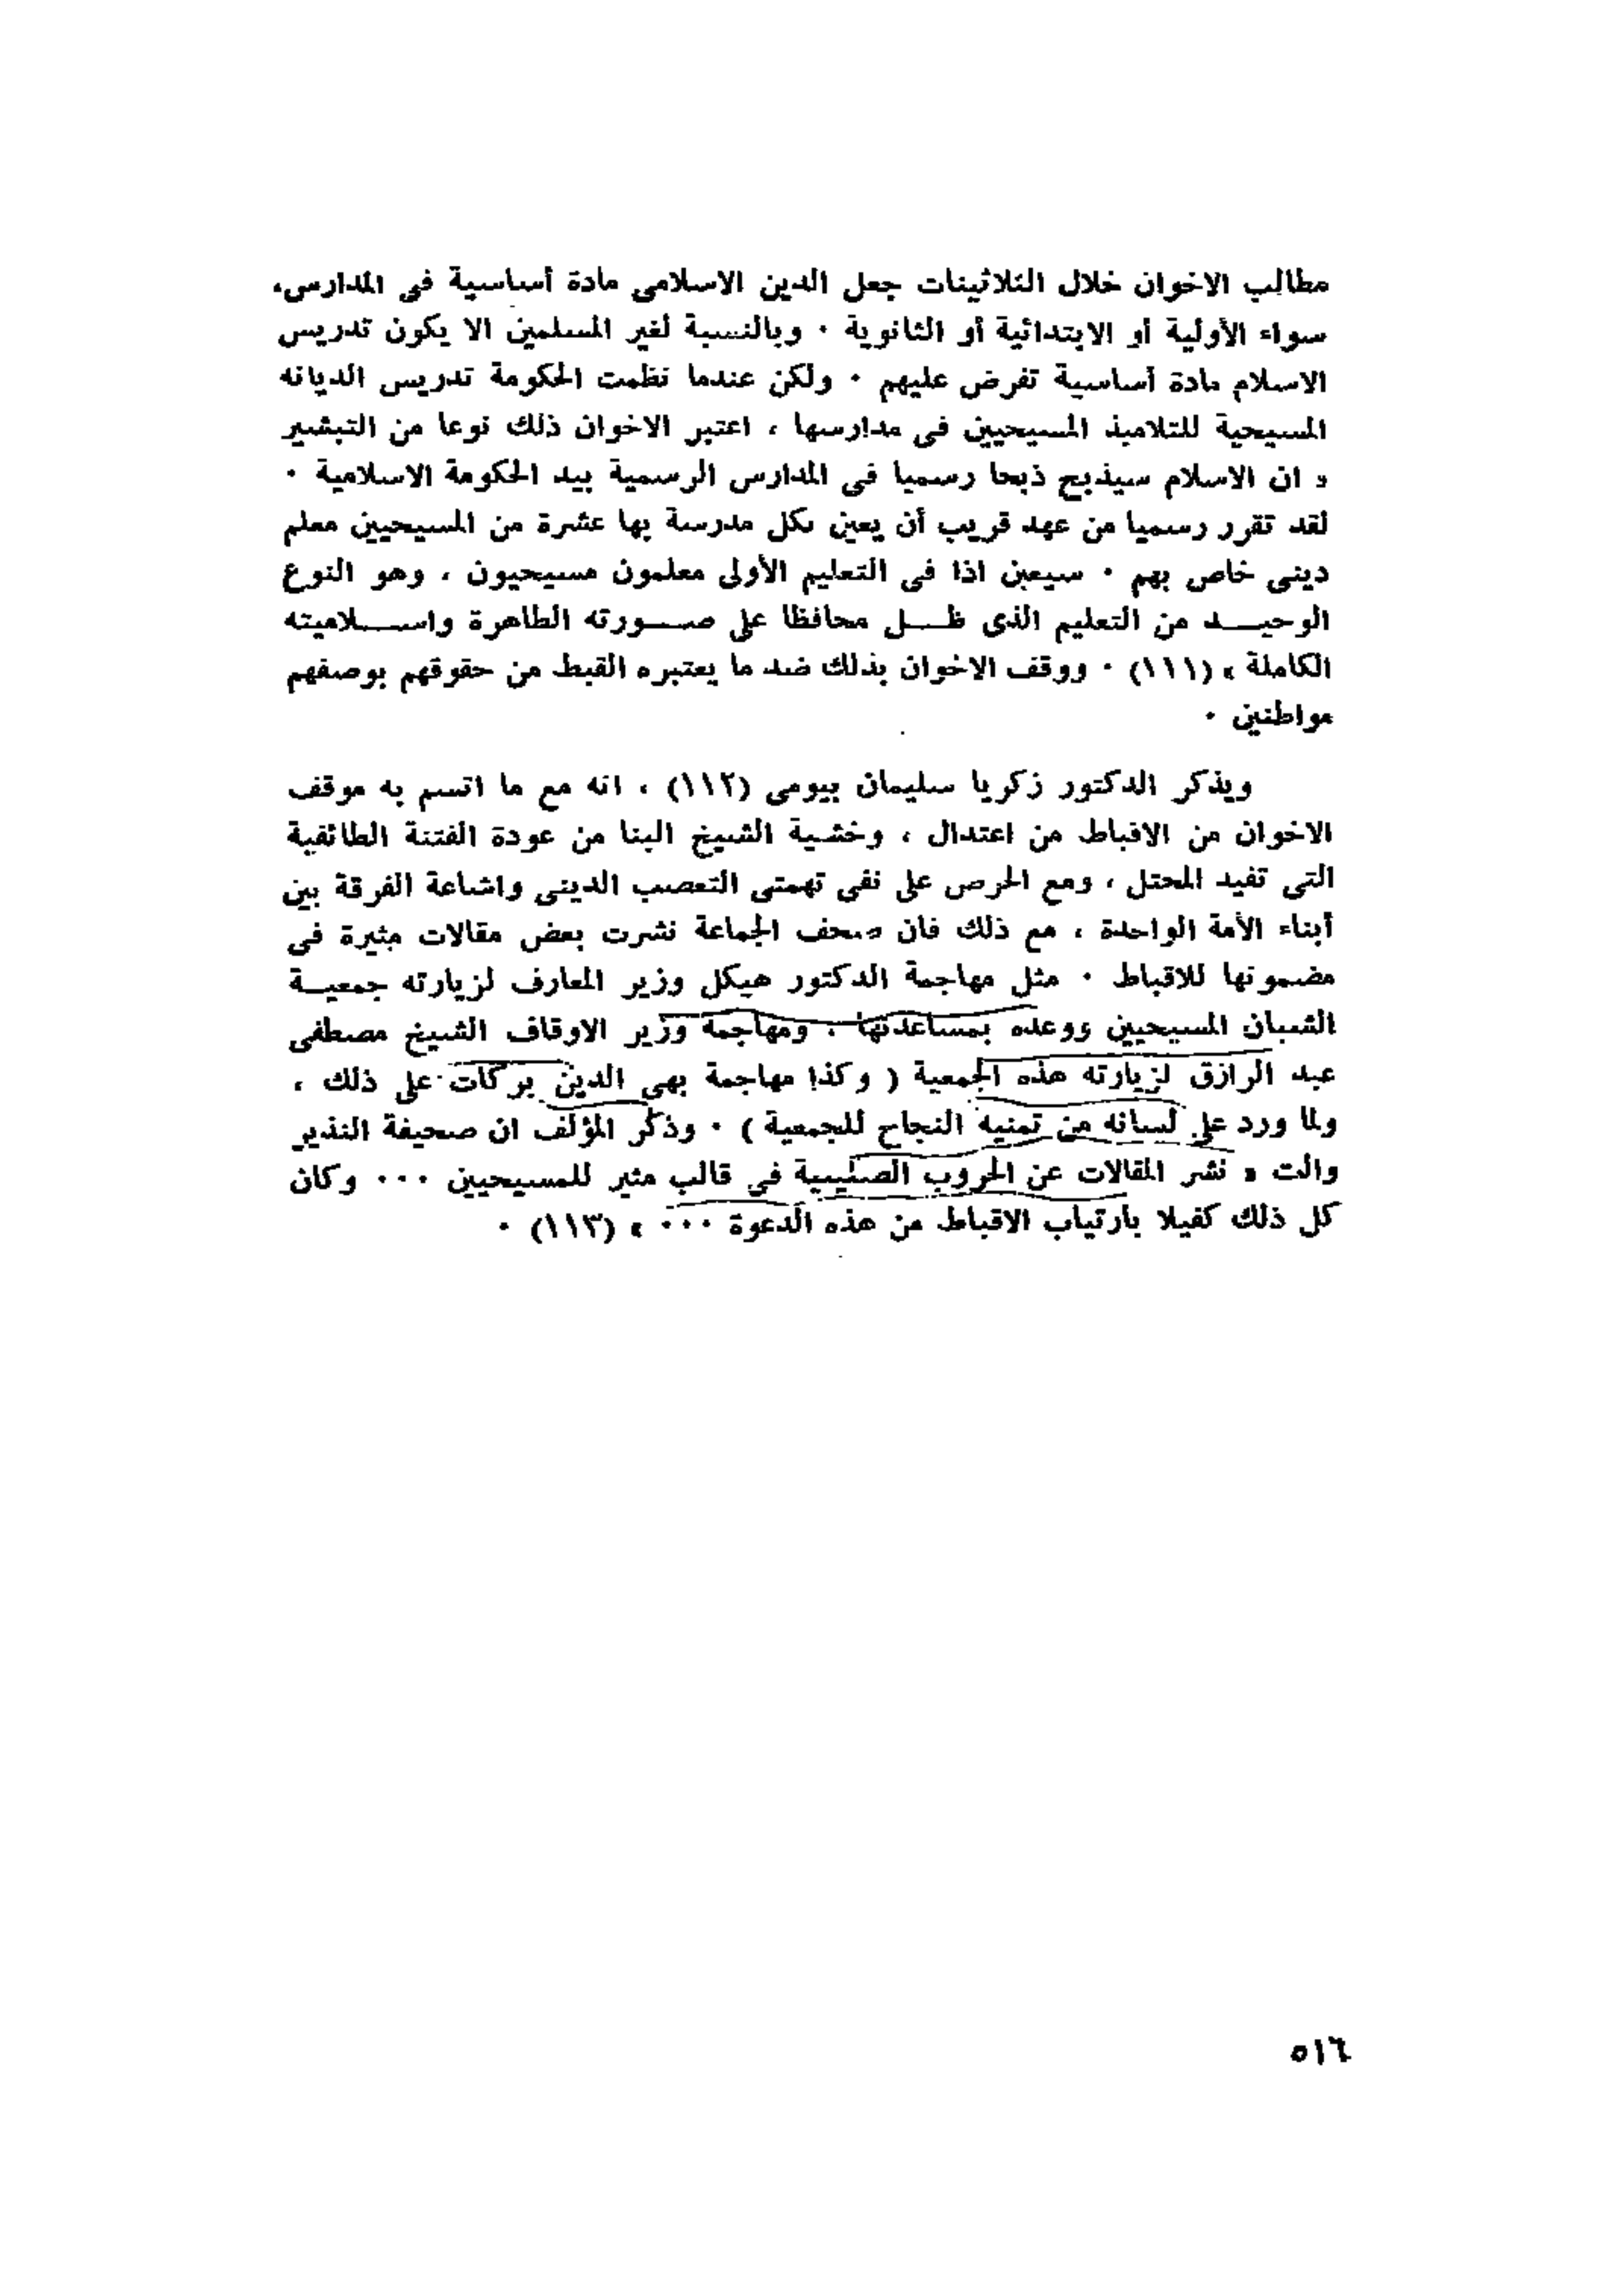 مطالب الاخوان خلال الثلاثينات جعل الدين الاسلامى مادة أساسية فى المدارس،
سواء الأولية أو الابتدائية أو الثانوية ٠ وبالنسبة لغير المسلمين الا يكون تدريس
الاسلام مادة أساسية تفرض عليهم ٠ ولكن عندما نظمت الحكومة تدريس الديانه
المسيحية للتلاميذ المسيحيين فى مدارسها ، اعتبر الاخوان ذلك نوعا من التبشير
« ان الاسلام سيذبح ذبحا رسميا فى المدارس الرسمية بيد الحكومة الاسلامية ٠
لقد تقرر رسميا من عهد قريب أن يعين بكل مدرسة بها عشرة من المسيحيين معلم
دينى خاص بهم ٠ سيعين اذا فى التعليم الأولى معلمون مسيحيون ، وهو النوع
الوحيـــد من التعليم الذى ظـــل محافظا على صـــورته الطاهرة واســـلاميته
الكاملة » (١١١) ٠ ووقف الاخوان بذلك ضد ما يعتبره القبط من حقوقهم بوصفهم
مواطنين ٠
ويذكر الدكتور زكريا سليمان بيومى (١١٢) ، انه مع ما اتسم به موقف
الاخوان من الاقباط من اعتدال ، وخشية الشيخ البنا من عودة الفتنة الطائفية
التى تفيد المحتل ، ومع الحرص على نفى تهمتى التعصب الدينى واشاعة الفرقة بين
أبناء الأمة الواحدة ، مع ذلك فان صحف الجماعة نشرت بعض مقالات مثيرة فى
مضمونها للاقباط ٠ مثل مهاجمة الدكتور هيكل وزير المعارف لزيارته جمعيـة
الشبان المسيحيين ووعده بمساعدتها ، ومهاجمة وزير الاوقاف الشيخ مصطفى
عبد الرازق لزيارته هذه الجمعية ( وكذا مهاجمة بهى الدين بركات على ذلك ،
ولما ورد على لسانه من تمنيه النجاح للجمعية ) ٠ وذكر المؤلف ان صحيفة النذير
والت « نشر المقالات عن الحروب الصليبية في قالب مثير للمسيحيين ٠٠٠ وكان
كل ذلك كفيلا بارتياب الاقباط من هذه الدعوة ٠٠٠ » (١١٣) ٠
٥١٦